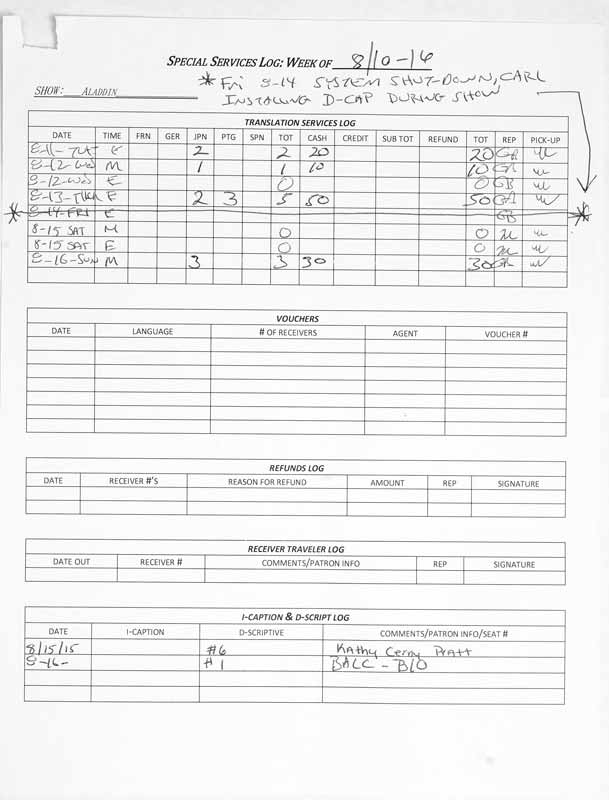 SPECIAL SERVICES LOG: WEEK OF 8/10-16
* Fri 8-14 SYSTEM SHUT-DOWN, CARL
SHOW: ALADDIN INSTALLING D-CAP DURING SHOW
TRANSLATION SERVICES LOG
DATE TIME FRN GER JPN PTG SPN TOT CASH CREDIT SUB TOT REFUND TOT REP PICK-UP
8-11-TUE E 2 2 20 20
8-12-WED M 1 1 10 10
8-12-WED E 0 0 GB
8-13-THUR E 2 3 5 50 50
* 8-14-FRI E GB *
8-15 SAT M 0 0
8-15 SAT E 0 0
8-16-SUN M 3 3 30 30
VOUCHERS
DATE LANGUAGE # OF RECEIVERS AGENT VOUCHER #
REFUNDS LOG
DATE RECEIVER #'S REASON FOR REFUND AMOUNT REP SIGNATURE
RECEIVER TRAVELER LOG
DATE OUT RECEIVER # COMMENTS/PATRON INFO REP SIGNATURE
I-CAPTION & D-SCRIPT LOG
DATE I-CAPTION D-SCRIPTIVE COMMENTS/PATRON INFO/SEAT #
8/15/15 #6 Kathy Cerny Pratt
8-16- #1 BALC - B10